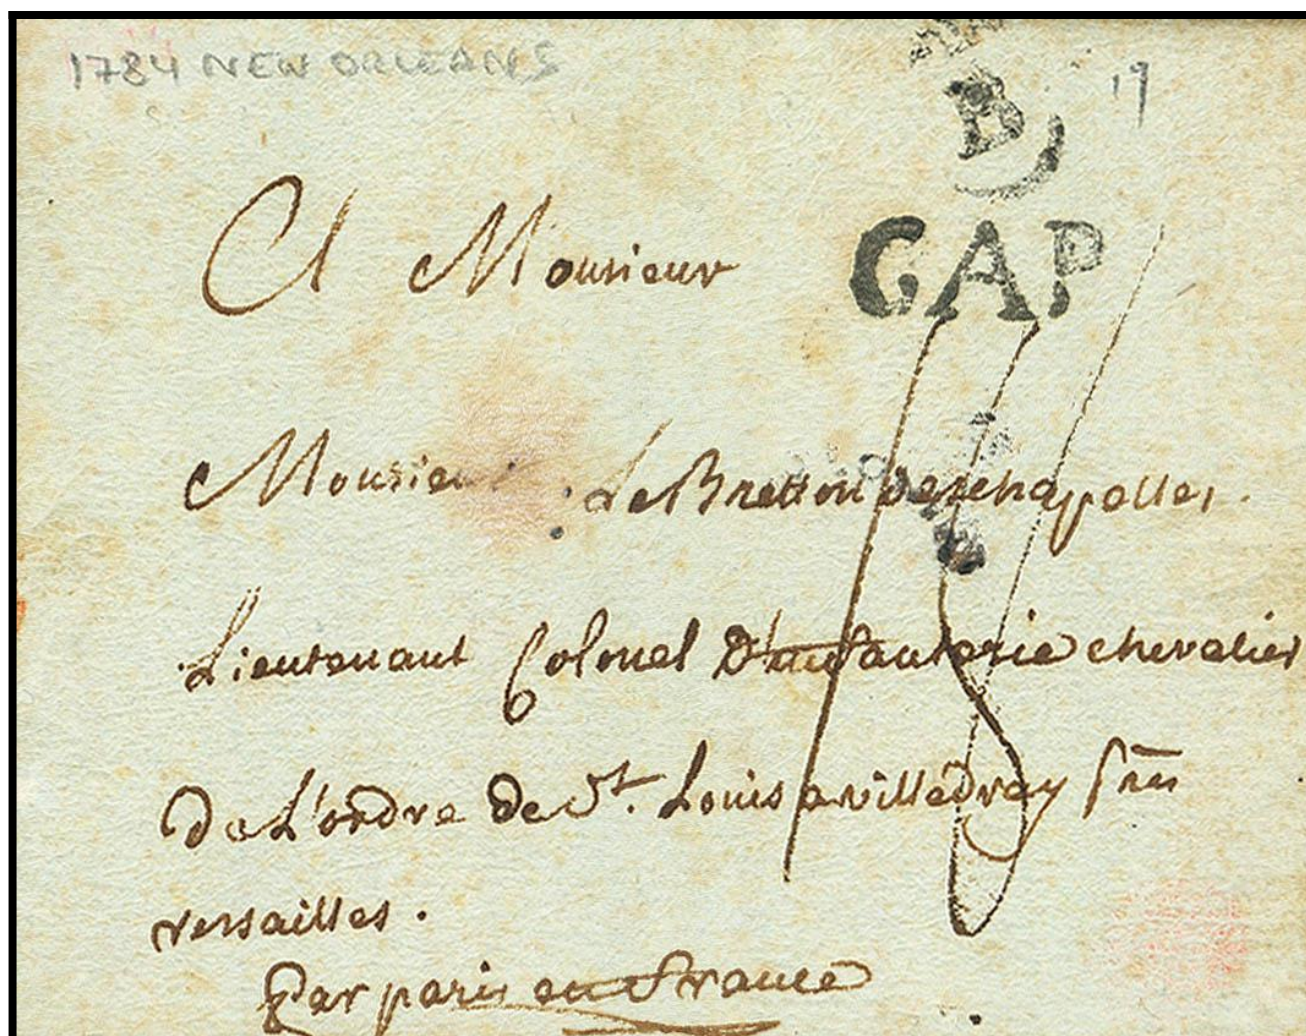 1784 NEW ORLEANS
B
19
CAP
A Monsieur
Monsieur Le Bretton Deschapelles.
18
Lieutenant Colonel D'infanterie chevalier
De L'ordre De St. Louis a villedvray prés
versailles.
Par paris en France